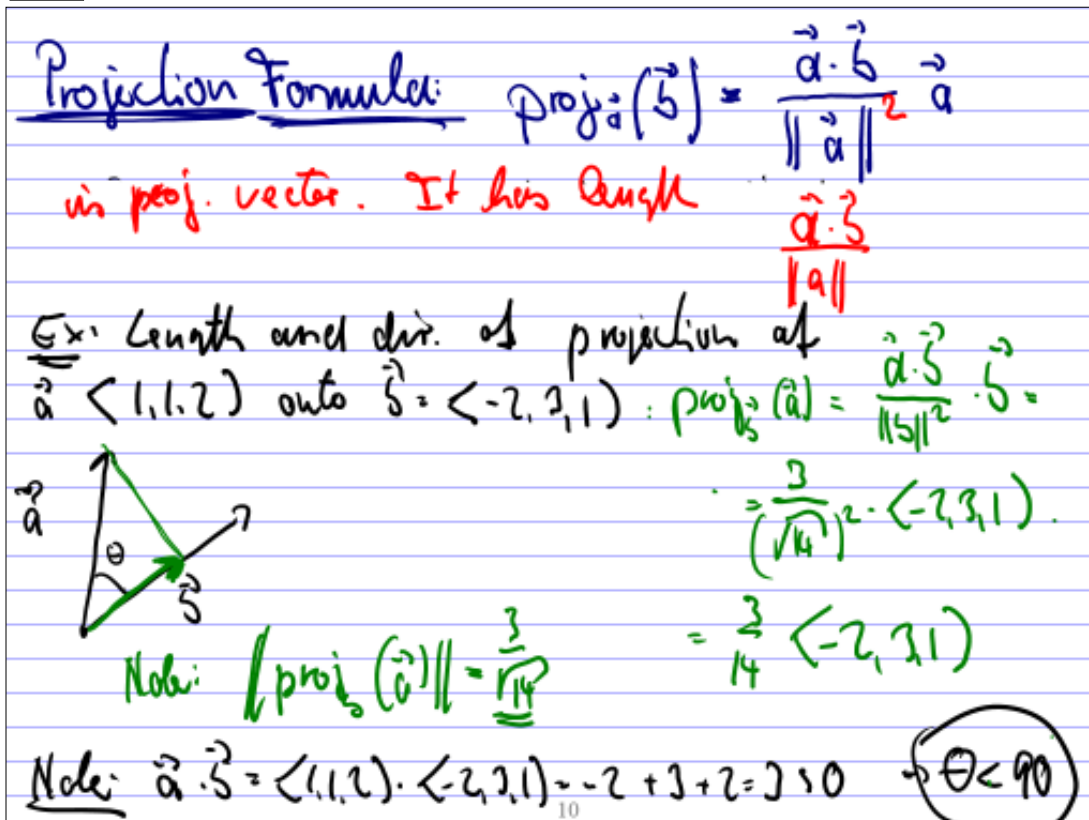 Projection Formula: proj_a⃗(b⃗) = a⃗·b⃗ / ‖a⃗‖² a⃗
is proj. vector. It has length a⃗·b⃗ / ‖a‖
Ex: Length and dir. of projection of
a⃗ <1,1,2> onto b⃗ = <-2,3,1> : proj_b⃗(a⃗) = a⃗·b⃗ / ‖b‖² · b⃗ =
= 3 / (√14)² · <-2,3,1>.
a⃗
θ
b⃗
= 3/14 <-2,3,1>
Note: ‖proj_b(a⃗)‖ = 3/√14
Note: a⃗·b⃗ = <1,1,2>·<-2,3,1> = -2+3+2=3>0 → θ<90
10